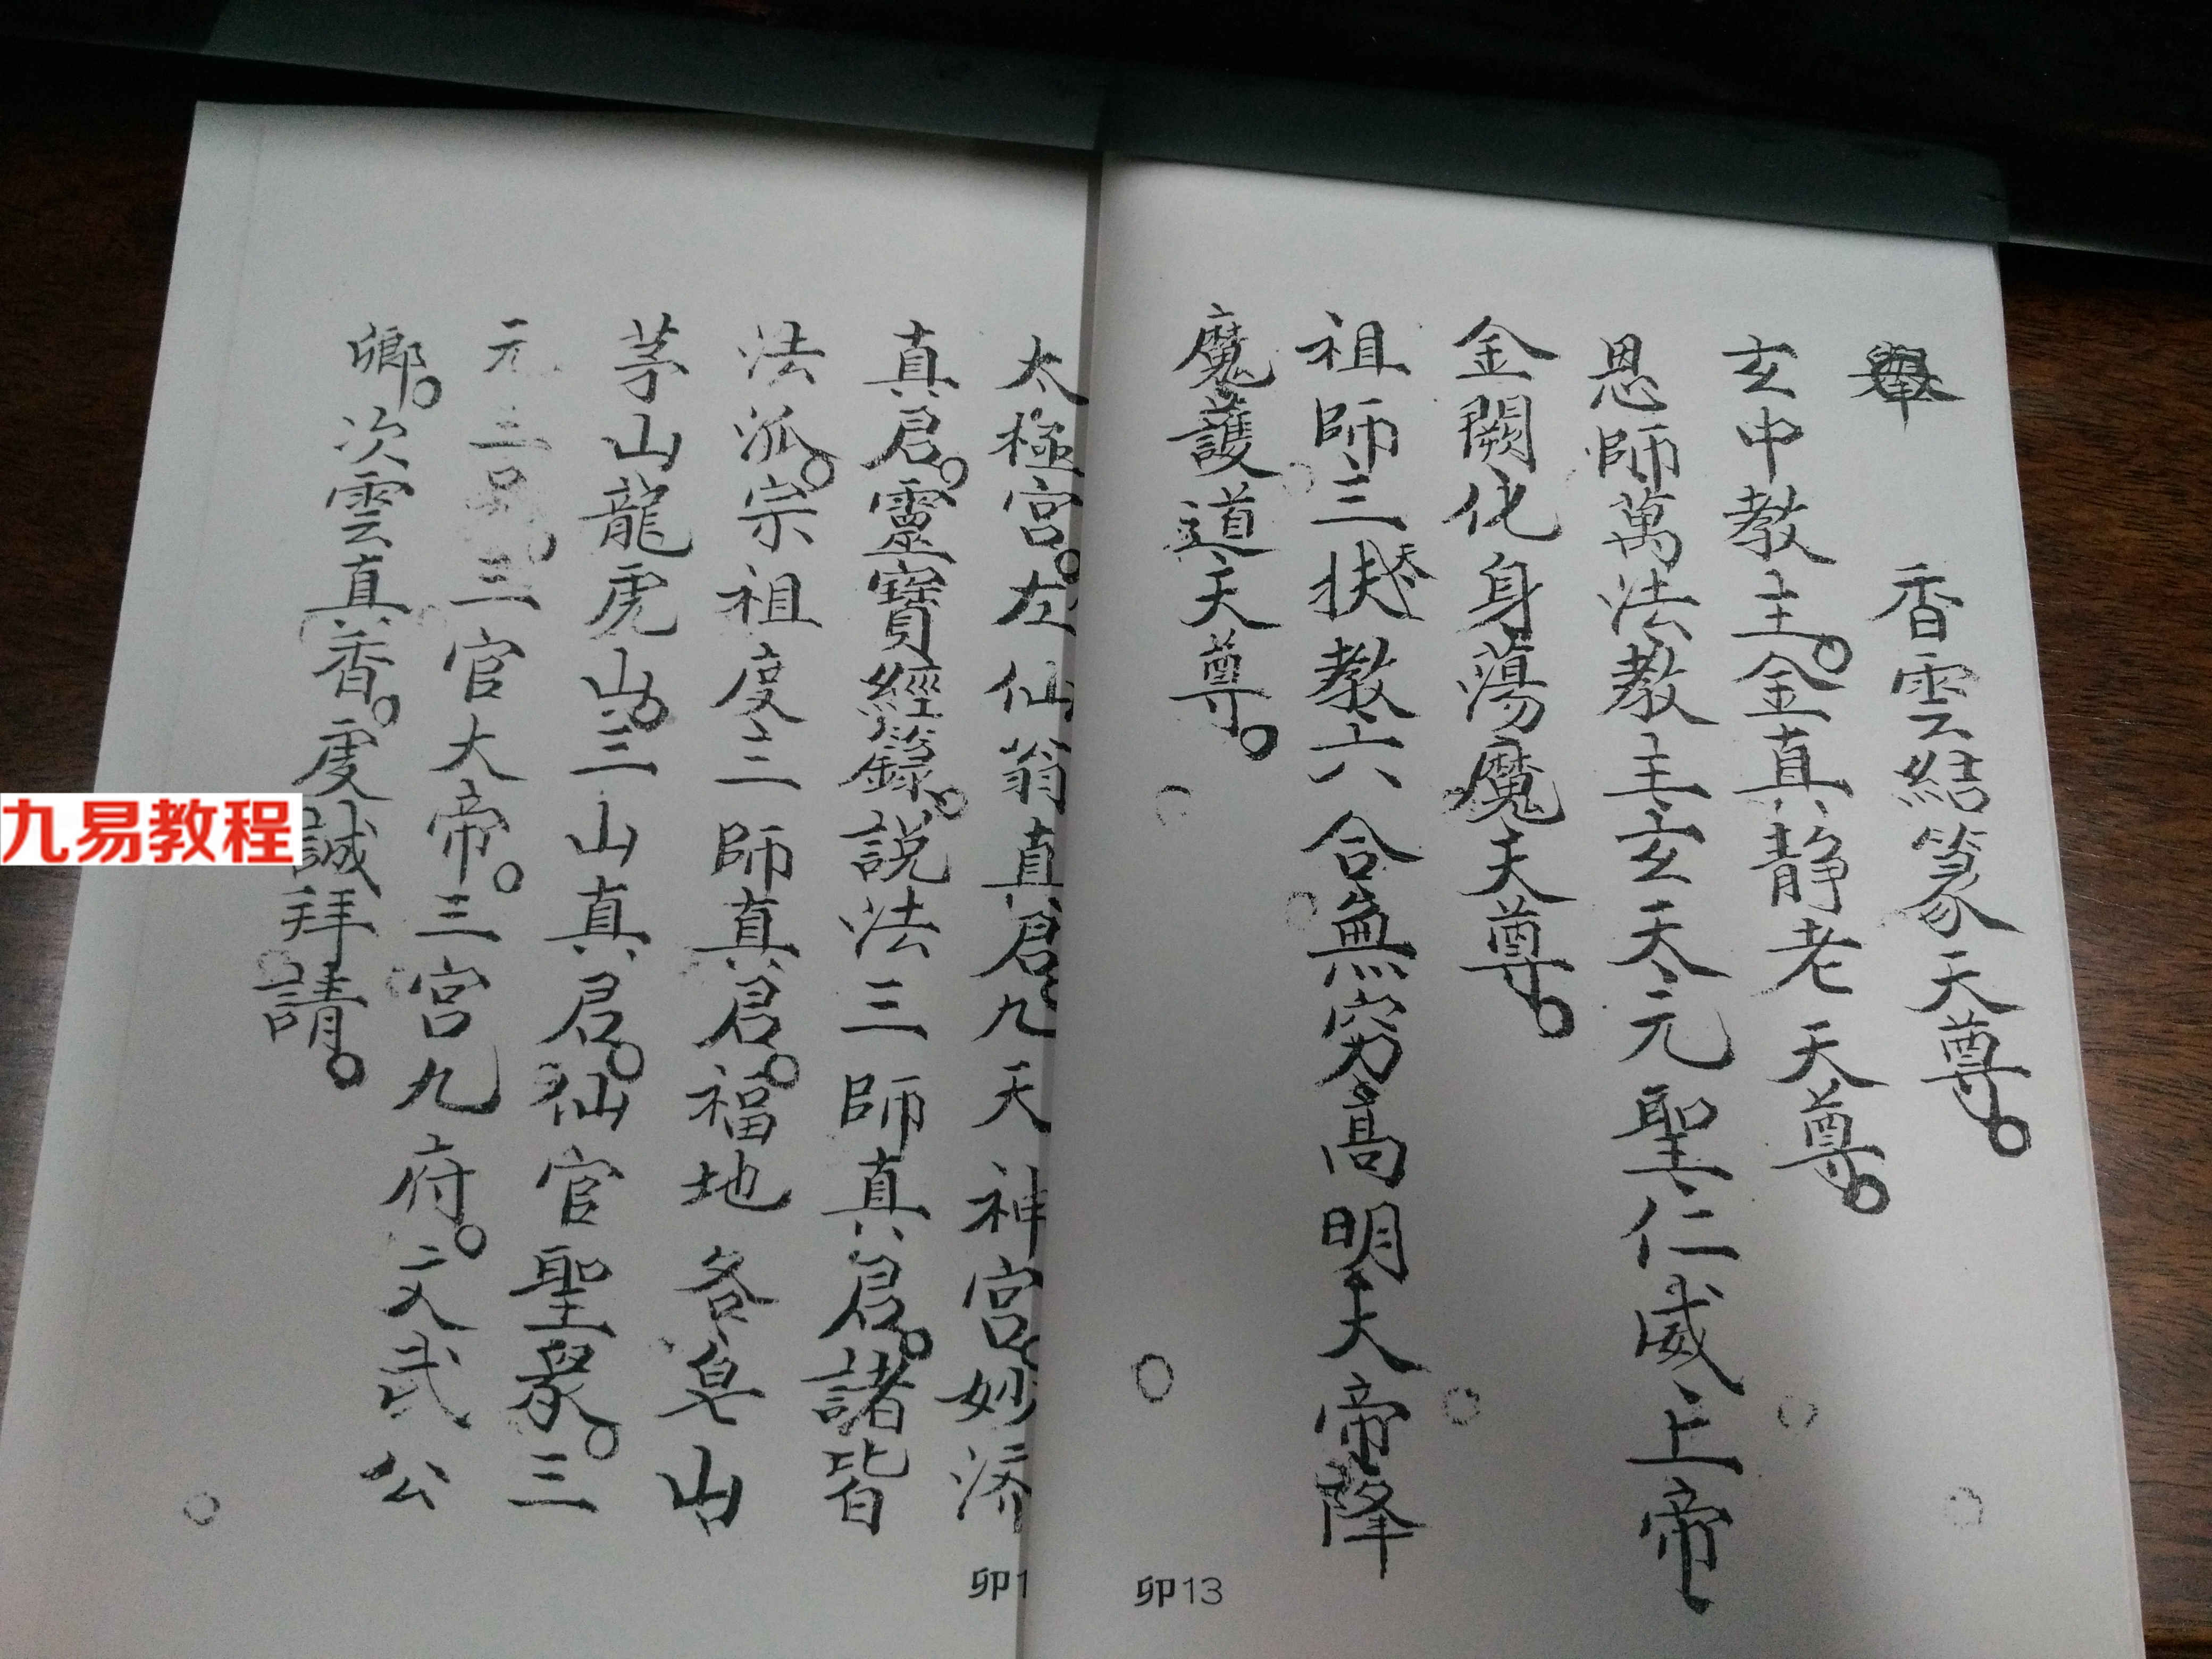 舉　香雲結篆天尊。
玄中教主。金真靜老天尊。
恩師萬法教主玄天元聖仁威上帝
金闕化身蕩魔天尊。
祖師三天扶教六合無窮高明大帝降
魔護道天尊。
卯13
太極宮。左仙翁真君。九天神宮。妙济
真君。靈寶經籙。說法三師真君。諸皆
法派。宗祖度三師真君。福地各皂山
茅山龍虎山。三山真君。仙官聖衆。三
元三品三官大帝。三宮九府。文武公
卿。次雲真香。虔誠拜請。
卯1
九易教程